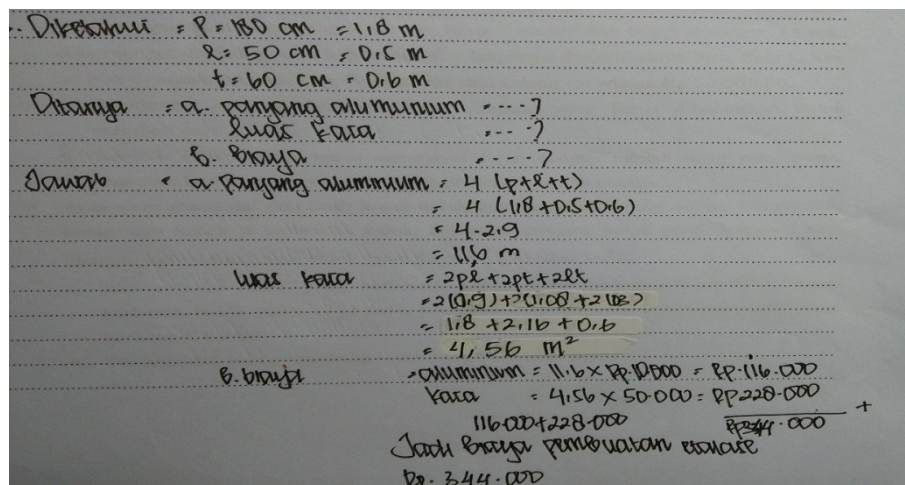 . Diketahui = P = 180 cm = 1,8 m
l = 50 cm = 0,5 m
t = 60 cm = 0,6 m
Ditanya = a. panjang alumunium ....?
luas kaca ....?
b. biaya ....?
Jawab = a. panjang alumunium = 4 (p+l+t)
= 4 (1,8 + 0,5 + 0,6)
= 4 . 2,9
= 11,6 m
luas kaca = 2pl + 2pt + 2lt
= 2(0,9) + 2(1,08) + 2(0,3)
= 1,8 + 2,16 + 0,6
= 4,56 m²
b. biaya = aluminium = 11,6 x Rp.10.000 = Rp.116.000
kaca = 4,56 x 50.000 = Rp 228.000
116.000 + 228.000 Rp344.000 +
Jadi biaya pembuatan etalase
Rp. 344.000